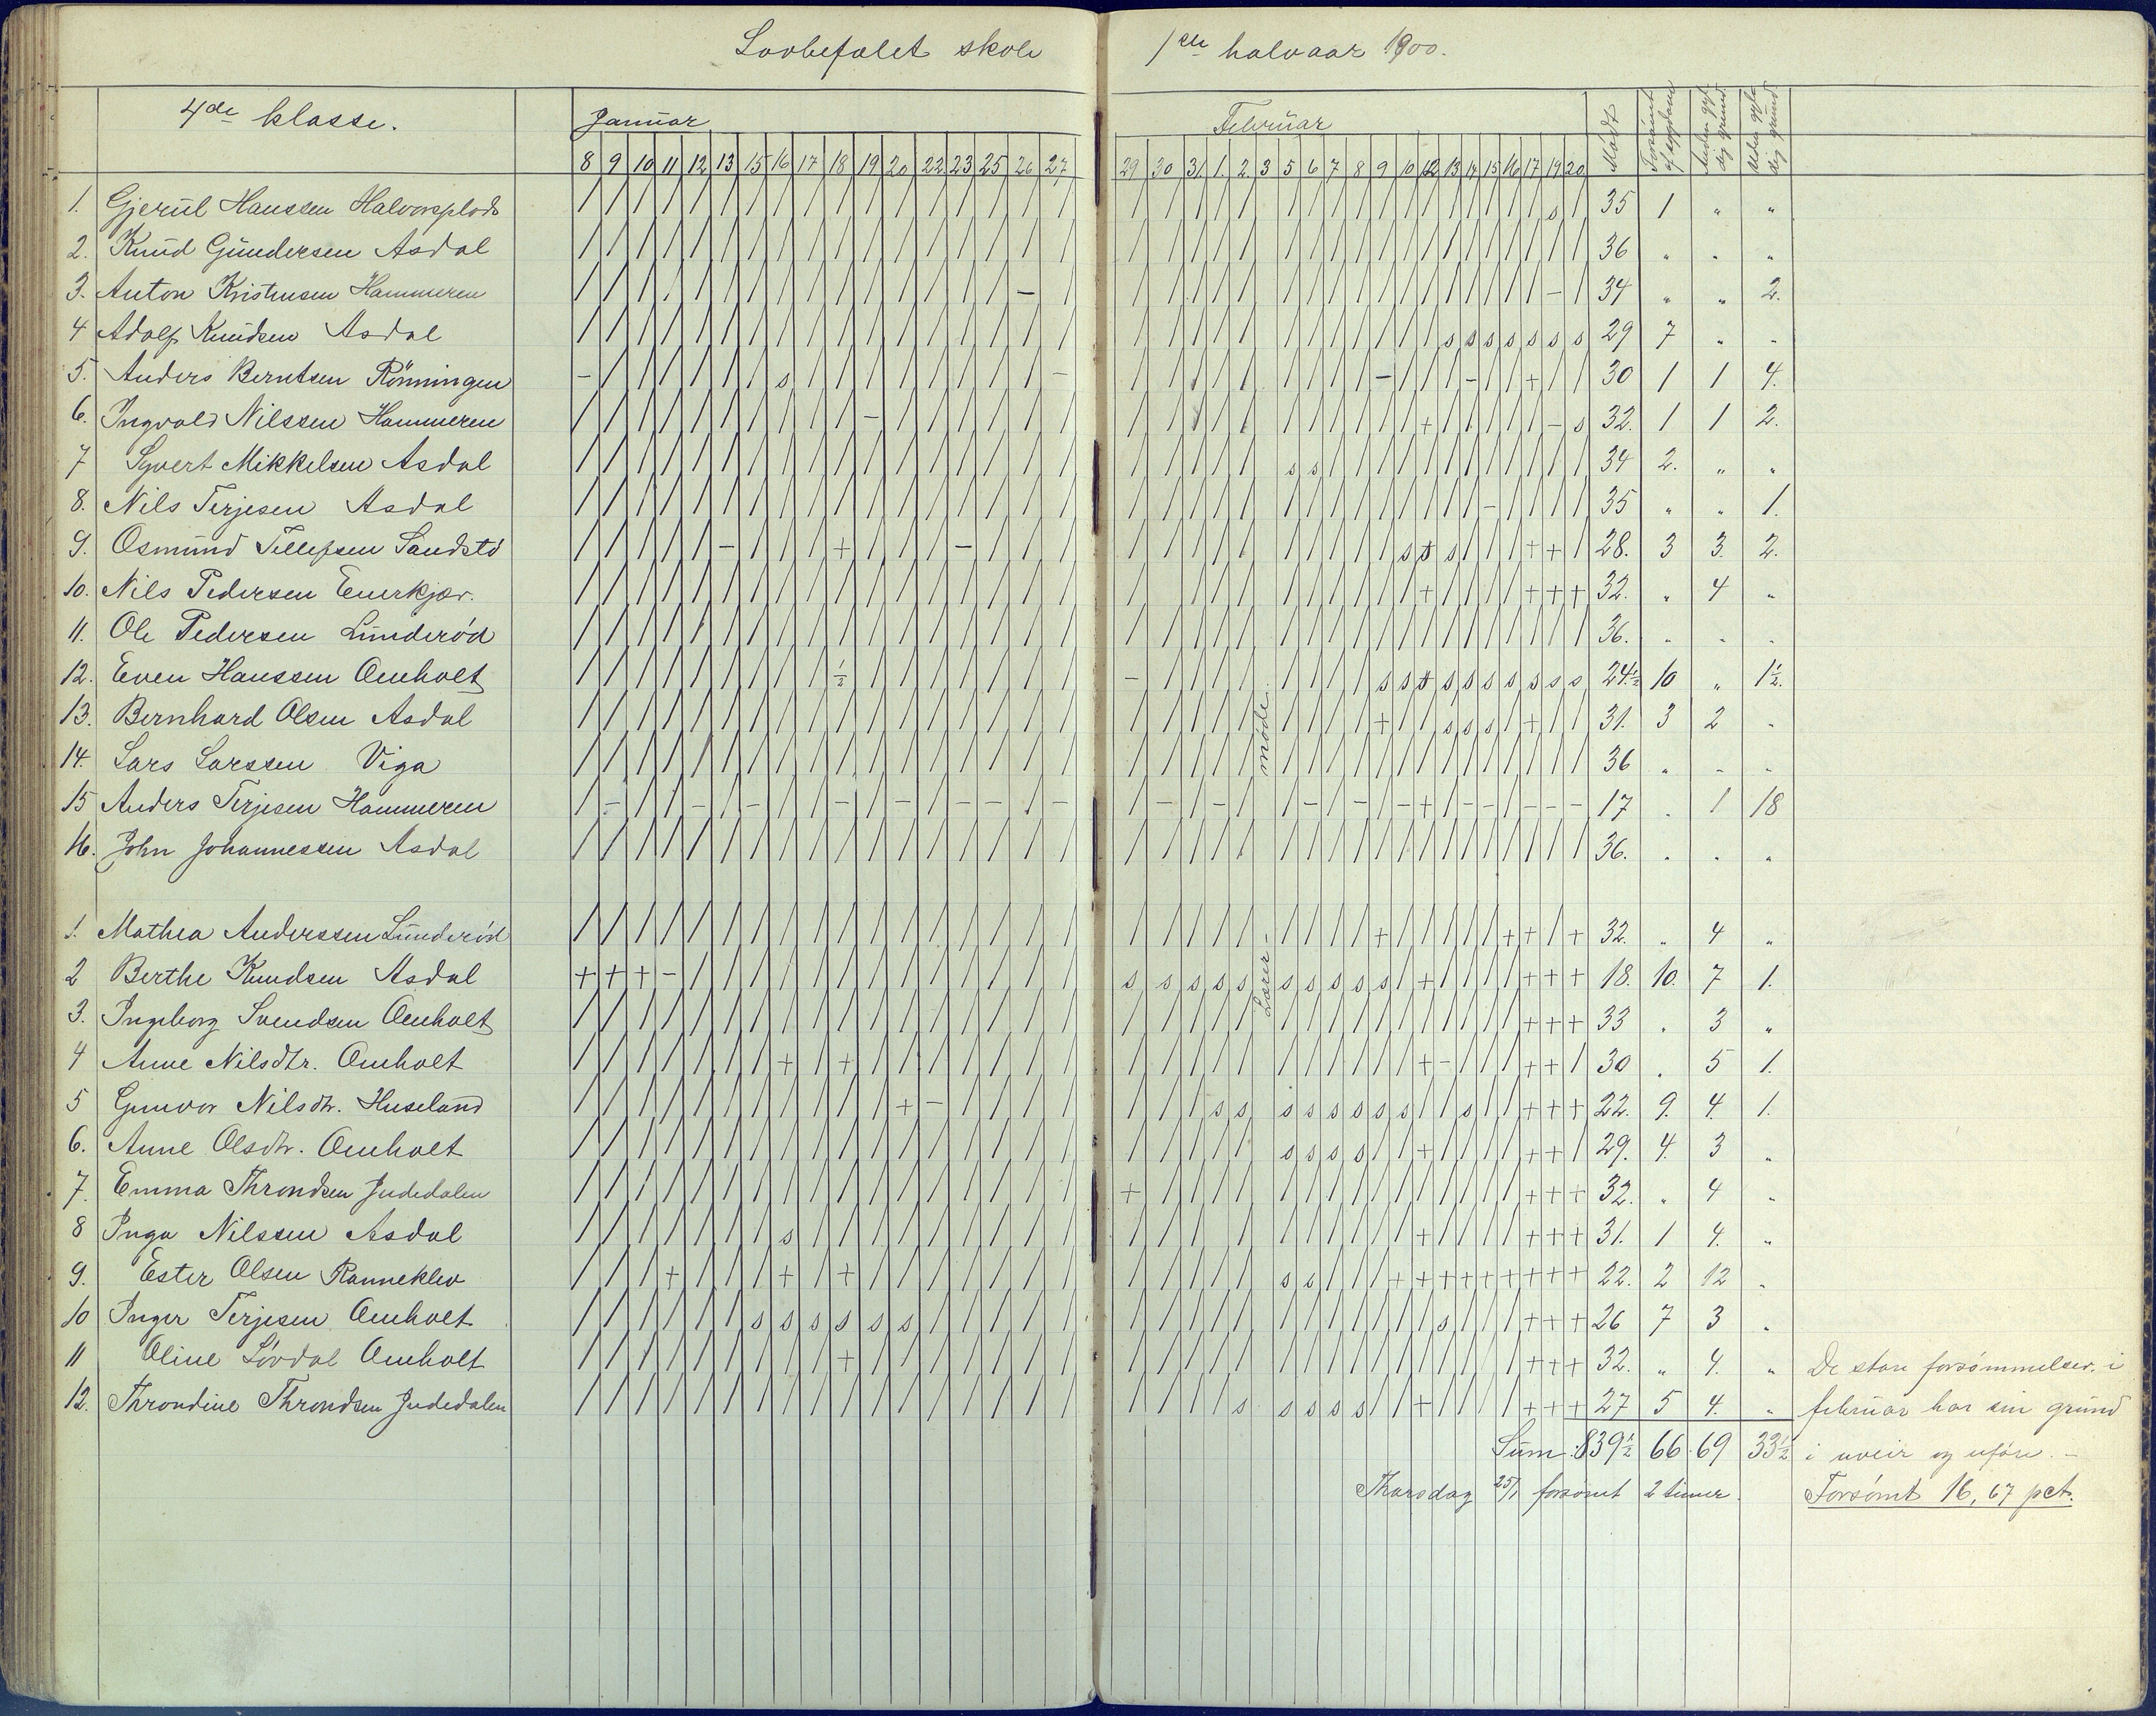 Lovbefalet skole 1ste halvaar 1900.
4de klasse.
Januar Februar Mødt Forsømt af sygdom Anden gyldig grund Uden gyldig grund
8 9 10 11 12 13 15 16 17 18 19 20 22 23 25 26 27 29 30 31 1. 2. 3 5 6 7 8 9 10 12 13 14 15 16 17 19 20
1. Gjerul Hanssen Halvorsplads / / / / / / / / / / / / / / / / / / / / / / / / / / / / / / / / / / s / 35 1 " "
2. Knud Gundersen Asdal / / / / / / / / / / / / / / / / / / / / / / / / / / / / / / / / / / / / 36 " " "
3. Anton Kristensen Hammeren / / / / / / / / / / / / / / / – / / / / / / / / / / / / / / / / / / – / 34 " " 2.
4 Adolf Knudsen Asdal / / / / / / / / / / / / / / / / / / / / / / / / / / / / / s s s s s s s 29 7 " "
5. Anders Berntsen Rönningen – / / / / / / s / / / / / / / / – / / / / / / / / / – / / / – / / + / / 30 1 1 4.
6. Ingvald Nilssen Hammeren / / / / / / / / / / – / / / / / / / / / / / / / / / / / + / / / / / – s 32. 1 1 2.
7 Syvert Mikkelsen Asdal / / / / / / / / / / / / / / / / / / / / / / s s / / / / / / / / / / / / 34 2. " "
8. Nils Terjesen Asdal / / / / / / / / / / / / / / / / / / / / / / / / / / / / / / / – / / / / 35 " " 1.
9. Osmund Tellefsen Sandstö / / / / / – / / / + / / / – / / / / / / / / / / / / / s + s / / / + + / 28. 3 3. 2.
10. Nils Pedersen Enerkjær. / / / / / / / / / / / / / / / / / / / / / / / / / / / / + / / / / + + + 32. " 4 "
11. Ole Pedersen Lunderød / / / / / / / / / / / / / / / / / / / / / / / / / / / / / / / / / / / / 36. " " "
12. Even Hanssen Omholt / / / / / / / / / ½ / / / / / / / – / / / / / / / / s s s s s s s s s s 24½ 10 " 1½.
13. Bernhard Olsen Asdal / / / / / / / / / / / / / / / / / / / / / / / / / / + / / s s s / + / / 31. 3 2 "
14. Lars Larssen Viga / / / / / / / / / / / / / / / / / / / / / / / / / / / / / / / / / / / / 36 " " "
15 Anders Terjesen Hammeren / – / / – / – / / – / – / – – / – / – / – / / – / – / – + / – – / – – – 17 " 1 18
16. John Johannessen Asdal / / / / / / / / / / / / / / / / / / / / / / / / / / / / / / / / / / / / 36. " " "
Lærermøde.
1. Mathea Anderssen Lunderød / / / / / / / / / / / / / / / / / / / / / / / / / / + / / / / / + + / + 32. " 4 "
2 Berthe Knudsen Asdal + + + – / / / / / / / / / / / / / s s s s s s s s s s / + / / / / + + + 18. 10. 7 1.
3. Ingeborg Svendsen Omholt / / / / / / / / / / / / / / / / / / / / / / / / / / / / / / / / / + + + 33 " 3 "
4 Anne Nilsdtr. Omholt / / / / / / / + / + / / / / / / / / / / / / / / / / / / + – / / / + + / 30 " 5 1.
5 Gunvor Nilsdtr. Huseland / / / / / / / / / / / + – / / / / / / / s s s s s s s s / / s / / + + + 22. 9. 4. 1.
6. Anne Olsdtr. Omholt / / / / / / / / / / / / / / / / / / / / / / s s s s / / + / / / / + + / 29. 4. 3 "
7. Emma Throndsen Judedalen / / / / / / / / / / / / / / / / / + / / / / / / / / / / / / / / / + + + 32. " 4 "
8 Inga Nilssen Asdal / / / / / / / s / / / / / / / / / / / / / / / / / / / / + / / / / + + + 31. 1 4. "
9. Ester Olsen Ranneklev / / / + / / / + / + / / / / / / / / / / / / s s / / / + + + + + + + + + 22. 2 12 "
10 Inger Terjesen Omholt / / / / / / s s s s s s / / / / / / / / / / / / / / / / / s / / / + + + 26 7 3 "
11 Oline Lövdal Omholt / / / / / / / / / + / / / / / / / / / / / / / / / / / / / / / / / + + + 32. " 4. " De store forsømmelser i
12. Throndine Throndsen Judedalen / / / / / / / / / / / / / / / / / / / / / s s s s s / / + / / / / + + + 27 5 4. " februar har sin grund
Sum: 839½ 66 69 33½ i uveir og uføre. –
Tharsdag 25/1 forsømt 2 timer. Forsømt 16,67 pct.